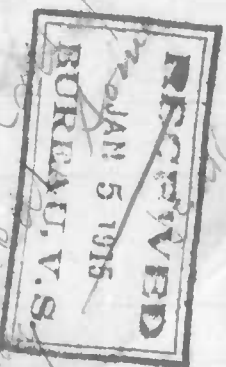 RECEIVED
JAN 5 1915
BUREAU, V.S.